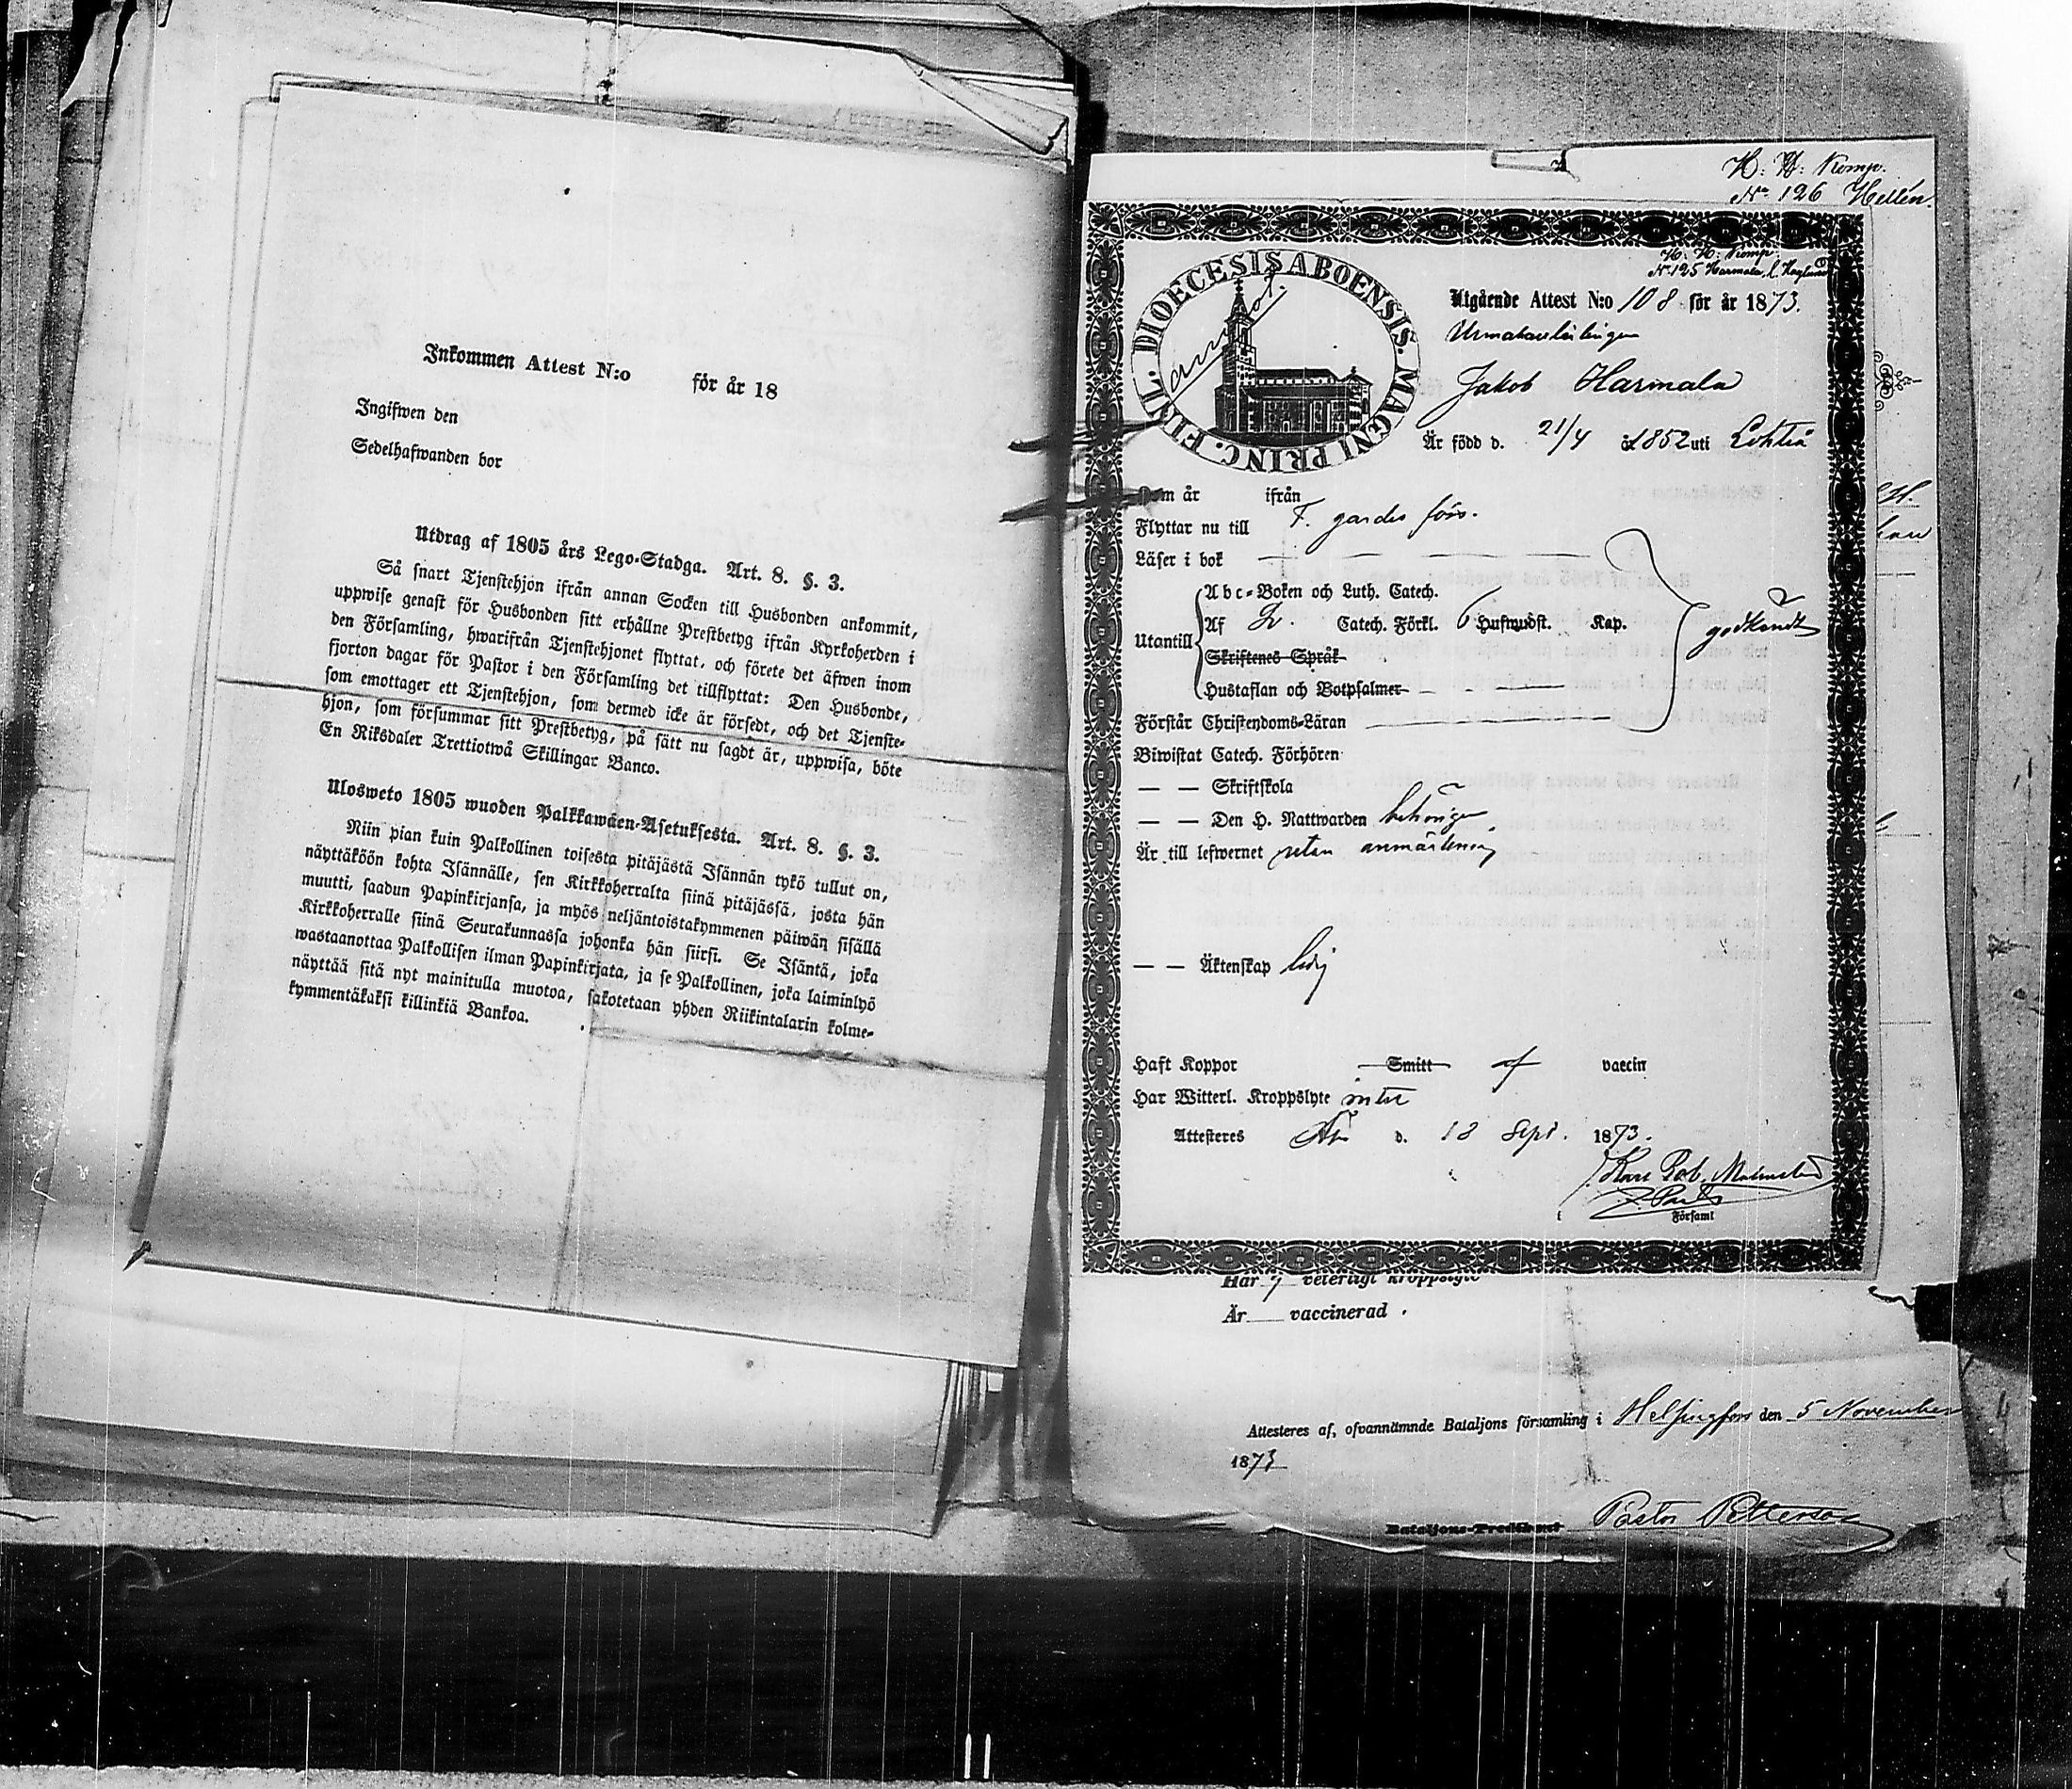 Inkommen Attest N:o för år 18
Ingifwen den
Sedelhafwanden bor
Utdrag af 1805 års Lego-Stadga. Art. 8. §. 3.
Så snart Tjenstehjon ifrån annan Socken till Husbonden ankommit,
uppwise genast för Husbonden sitt erhållne Prestbetyg ifrån Kyrkoherden i
den Församling, hwarifrån Tjenstehjonet flyttat, och förete det äfwen inom
fjorton dagar för Pastor i den Församling det tillflyttat: Den Husbonde,
som emottager ett Tjenstehjon, som dermed icke är försedt, och det Tjenste-
hjon, som försummar sitt Prestbetyg, på sätt nu sagdt är, uppwisa, böte
En Riksdaler Trettiotwå Skillingar Banco.
Ulosweto 1805 wuoden Palkkawäen-Asetuksesta. Art. 8. §. 3.
Niin pian kuin Palkollinen toisesta pitäjästä Isännän tykö tullut on,
näyttäköön kohta Isännälle, sen Kirkkoherralta siinä pitäjässä, josta hän
muutti, saadun Papinkirjansa, ja myös neljäntoistakymmenen päiwän sisällä
Kirkkoherralle siinä Seurakunnassa johonka hän siirsi. Se Isäntä, joka
wastaanottaa Palkollisen ilman Papinkirjata, ja se Palkollinen, joka laiminlyö
näyttää sitä nyt mainitulla muotoa, sakotetaan yhden Riikintalarin kolme-
kymmentäkaksi killinkiä Bankoa.
H: W: Komp.
No 126 Hellén.
H: W: Komp.
No 125 Harmala, l. Haglund
DIOECESIS ABOENSIS. MAGNI PRINC. FINL.
annot.
Utgående Attest N:o 108 för år 1873.
Urmakarlärlingen
Jakob Harmala
Är född d. 21/4 å 1852 uti Lohteå
Kom år ifrån
Flyttar nu till F. gardes förs.
Läser i bok
Abc-Boken och Luth. Catech.
Utantill Af Catech. Förkl. 6 Hufwudst. Kap. godkändt
Skriftenes Språk
Hustaflan och Botpsalmer
Förstår Christendoms-Läran
Biwistat Catech. Förhören
— — Skriftskola
— — Den H. Nattwarden behörigen
Är till lefwernet utan anmärkning
— — Äktenskap ledig
Haft Koppor Smitt af vaccin
Har Witterl. Kroppslyte intet
Attesteres Åbo d. 18 Sept. 1873.
Karl Rob. Malmsted
Församl
Har ej veterligt kroppslyte
Är vaccinerad.
Attesteres af, ofvannämnde Bataljons församling i Helsingfors den 5 November
1873
Bataljons-Predikant Pastor Petterson